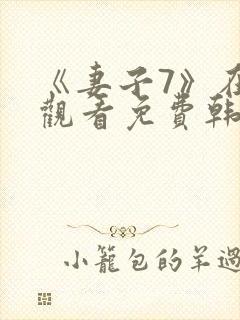 《妻子7》在
觀看免費韓
小籠包的羊過